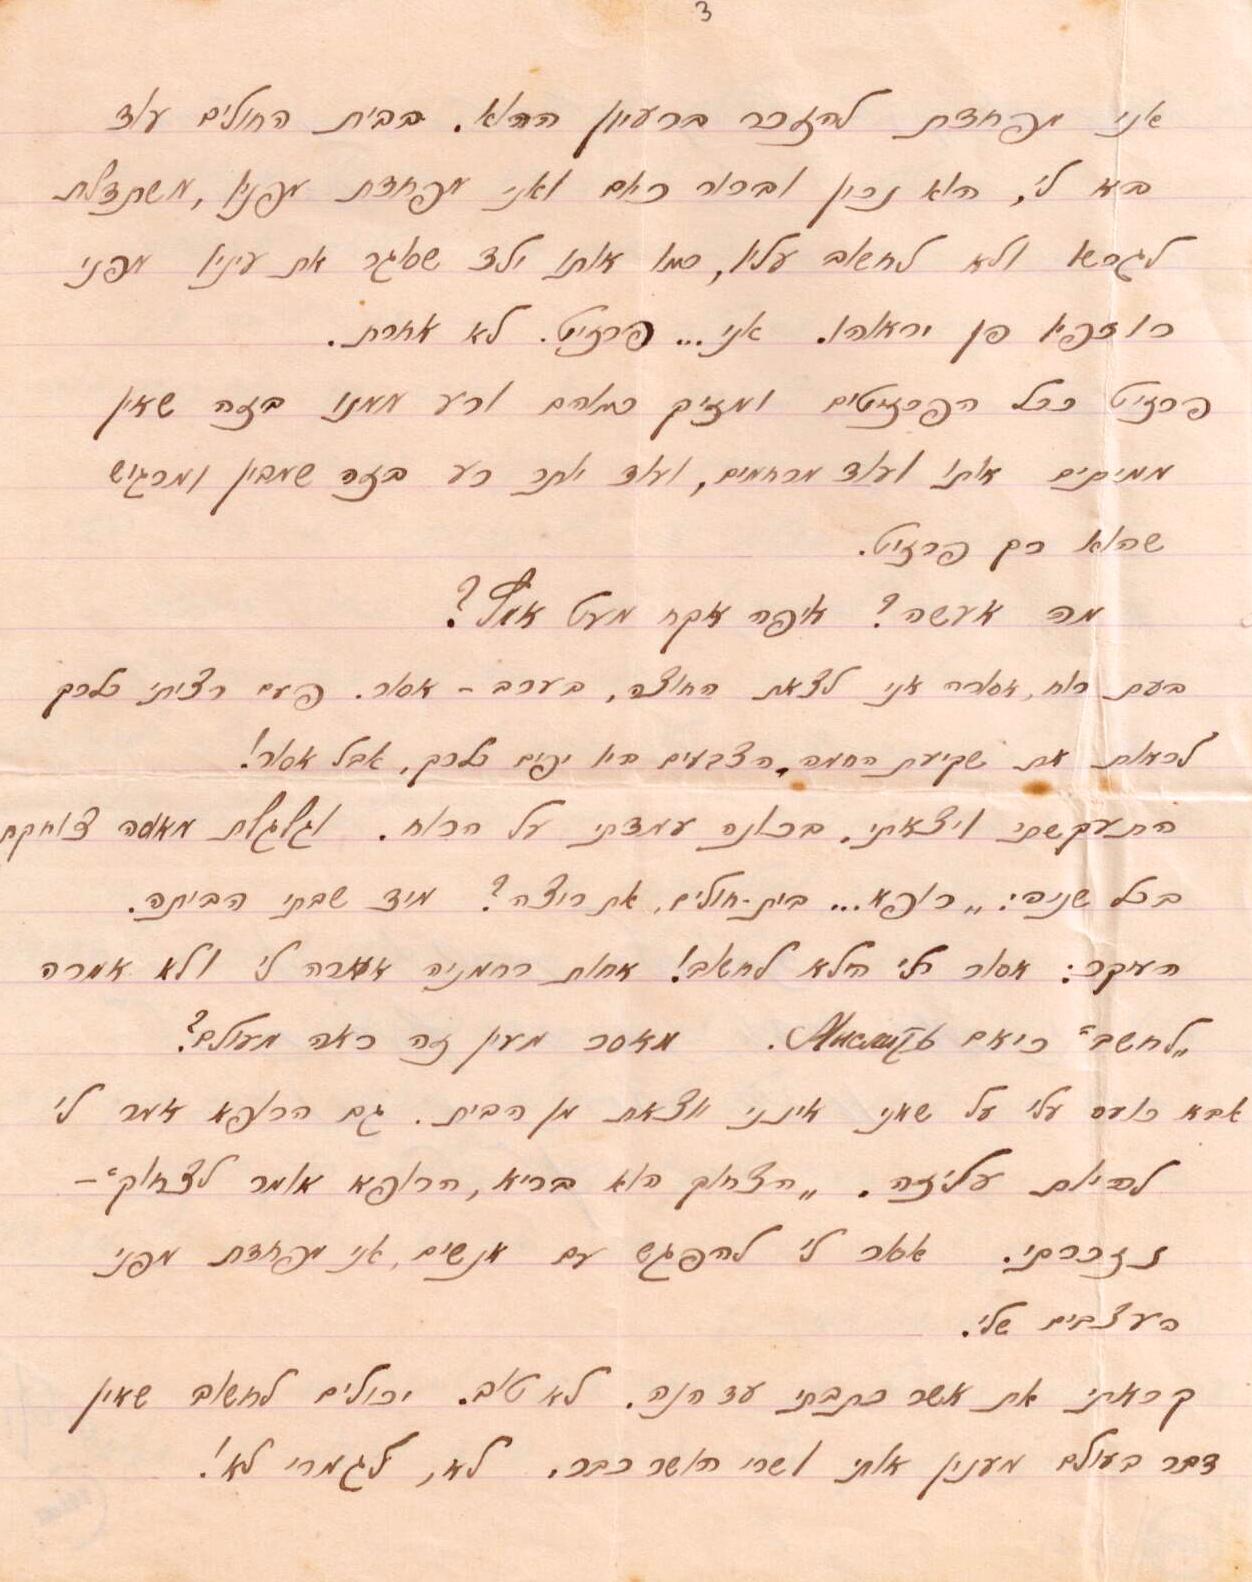 3
אני מפחדת להזכר ברעיון ההוא. בבית החולים עוד
בא לי, הוא נכון וברור כיום ואני מפחדת מפניו, משתדלת
לגרשו ולא לחשוב עליו, כמו אותו ילד שסוגר את עיניו מפני
רודפיו פן יראוהו. אני... פרזיט. לא אחרת.
פרזיט ככל הפרזיטים ומזיק כמוהם ורע ממנו בזה שאין
ממיתים אותו ועוד מרחמים, ועוד יותר רע בזה שמבין ומרגיש
שהוא רק פרזיט.
מה אעשה? איפה אקח מעט אור?
בעת רוח, אסורה אני לצאת החוצה, בערב - אסור. פעם רציתי כל כך
לראות את שקיעת החמה, הצבעים היו יפים כל כך, אבל אסור!
התעקשתי ויצאתי. בכונה עמדתי על הרוח. וגלגלת צוחקת
בכל שניה: „רופא... בית-חולים, את רוצה? מיד שבתי הביתה.
העיקר: אסור לי הלא לחשוב! אחות רחמניה אמרה לי ולא אמרה
„לחשב" כיאם Мыслить. מאסר מעין זה ראה מעולם?
אבא כועס עלי על שאני אינני יוצאת מן הבית. גם הרופא אמר לי
להיות עליזה. „הצחוק הוא בריא, הרופא אומר לצחוק" -
נזכרתי. אסור לי להפגש עם אנשים, אני מפחדת מפני
העצבים שלי.
קראתי את אשר כתבתי עד הנה. לא טוב. יכולים לחשוב שאין
דבר בעולם מענין אותי ושרי חושך כבר. לא, לגמרי לא!